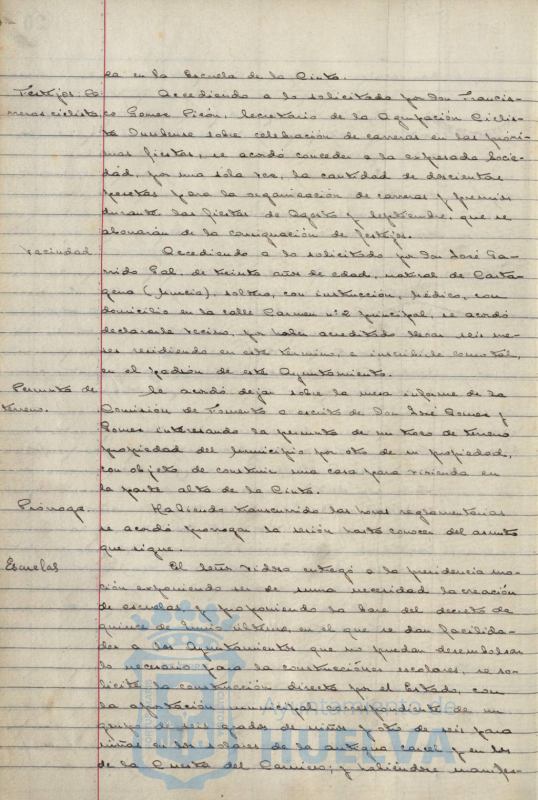 ca en la Escuela de la Cinta.
Festejos. Ca- Accediendo a lo solicitado por Don Francis-
rreras ciclistas co Gomez Picón, Secretario de la Agrupación Ciclis-
ta Onubense sobre celebración de carreras en las próxi-
mas fiestas, se acordó conceder a la expresada Socie-
dad, por una sola vez, la cantidad de doscientas
pesetas para la organización de carreras y premios
durante las fiestas de Agosto y Septiembre, que se
abonarán de la consignación de festejos.
Vecindad. Accediendo a lo solicitado por Don José Ga-
rrido Gal, de treinta años de edad, natural de Carta-
gena (Murcia), soltero, con instrucción, Médico, con
domicilio en la calle Carmen nº 2 principal, se acordó
declararle vecino, por haber acreditado llevar seis me-
ses residiendo en este término, e inscribirle como tal,
en el padrón de este Ayuntamiento.
Permuta de Se acordó dejar sobre la mesa informe de la
terreno. Comisión de Fomento a escrito de Don José Gomez y
Gomez interesando la permuta de un trozo de terreno
propiedad del Municipio por otro de su propiedad,
con objeto de construir una casa para vivienda en
la parte alta de la Cinta.
Prórroga. Habiendo transcurrido las horas reglamentarias
se acordó prorrogar la sesión hasta conocer del asunto
que sigue.
Escuelas El Señor Vidosa entregó a la presidencia mo-
ción exponiendo ser de suma necesidad la creación
de escuelas, y proponiendo la base del decreto de
quince de Junio último, en el que se dan facilida-
des a los Ayuntamientos que no puedan desembolsar
lo necesario para la construcciones escolares, se so-
licite la construcción directa por el Estado, con
la aportación municipal correspondiente de un
grupo de seis grados de niños y otro de seis para
niñas en los solares de la antigua carcel y en los
de la Cuesta del Carnicero; y habiéndose manifes-
Ayuntamiento de
HUELVA